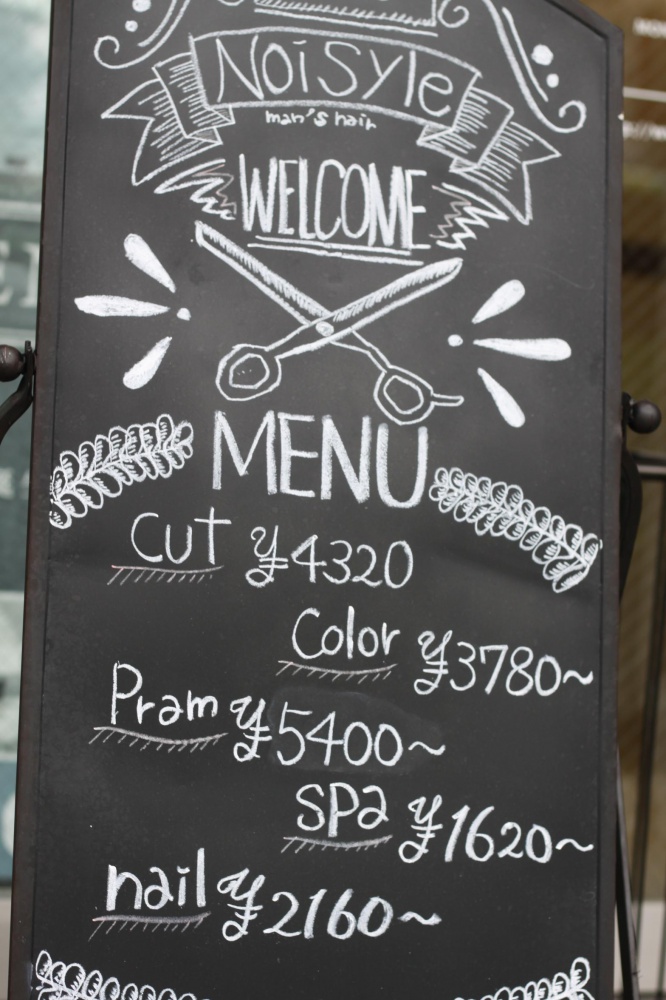 NoiSyle
man's hair
WELCOME
MENU
cut ¥4320
Color ¥3780~
Pram ¥5400~
spa ¥1620~
nail ¥2160~